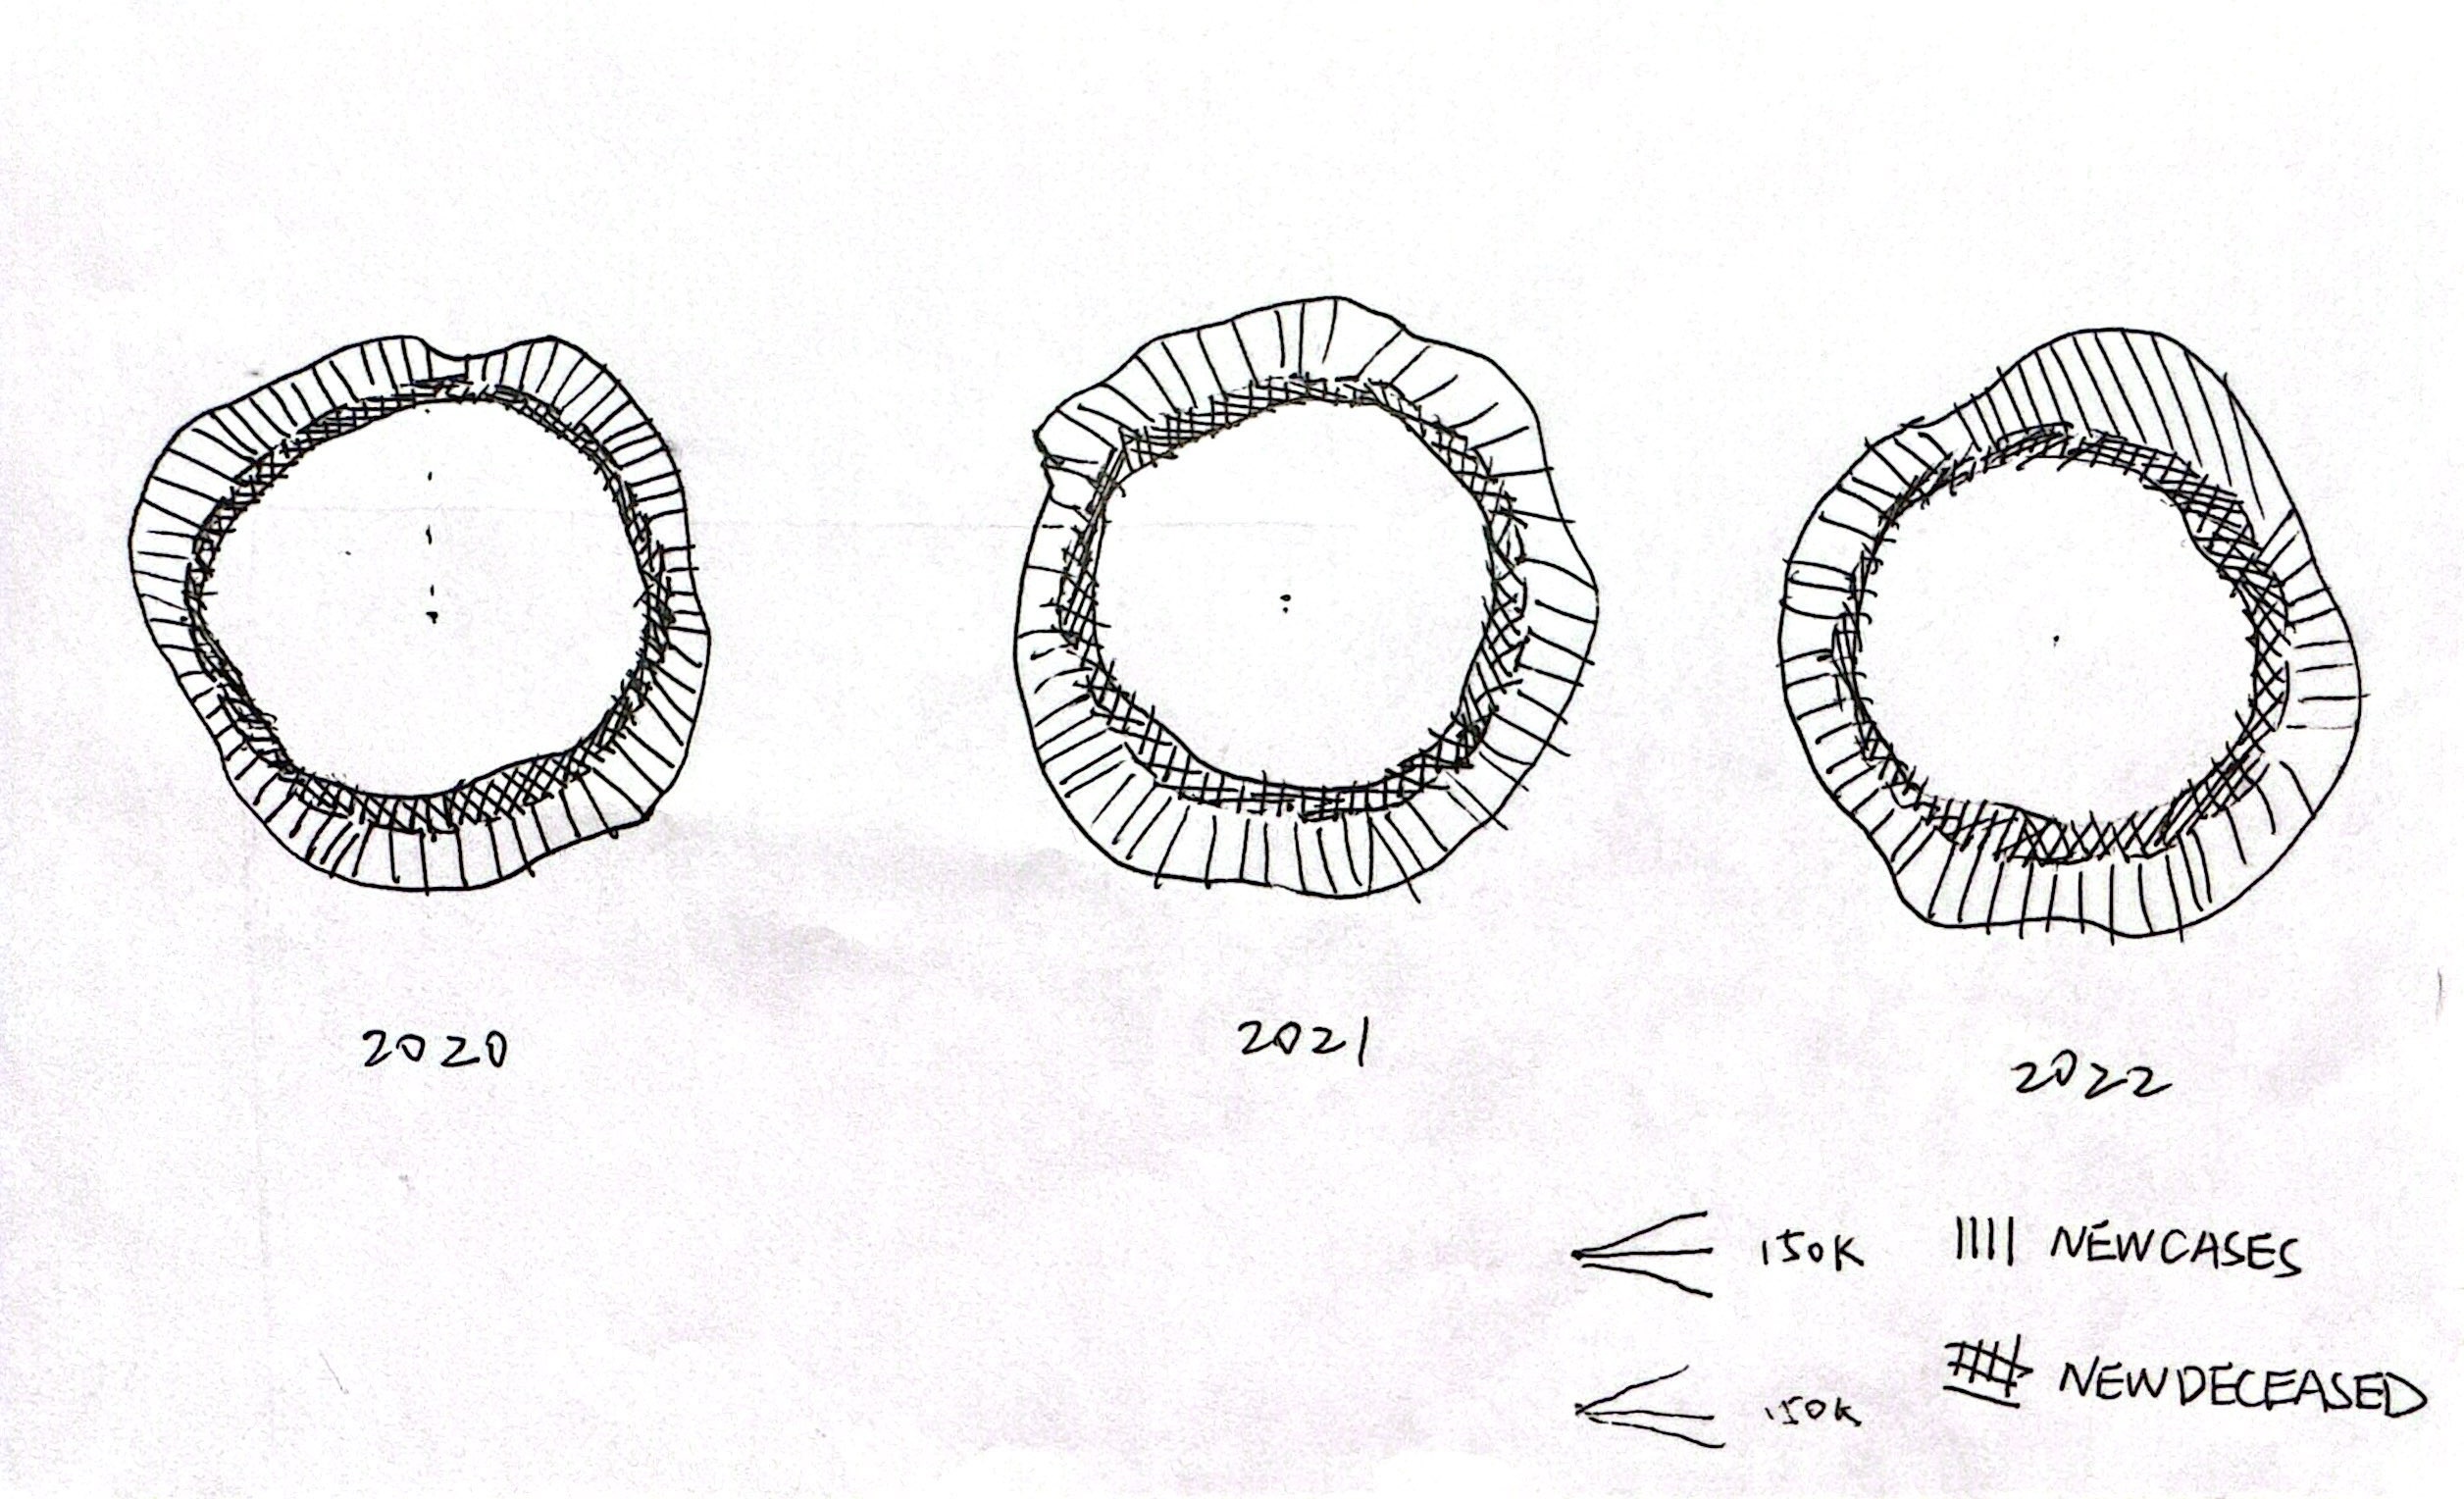 2020
2021
2022
150K
|||| NEW CASES
150K
NEW DECEASED